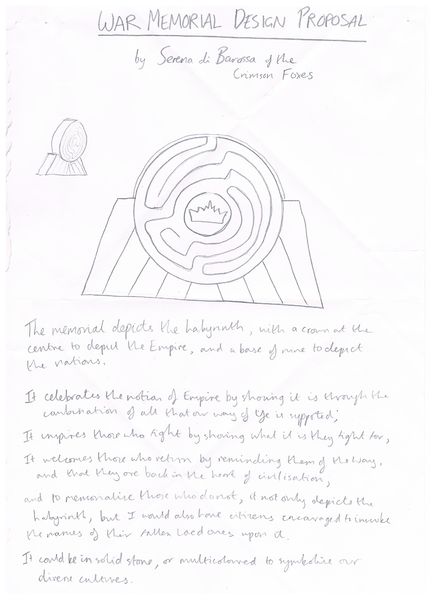 WAR MEMORIAL DESIGN PROPOSAL
by Serena di Barossa of the
Crimson Foxes
The memorial depicts the labyrinth, with a crown at the
centre to depict the Empire, and a base of nine to depict
the nations.
It celebrates the notion of Empire by showing it is through the
combination of all that our way of life is supported;
It inspires those who fight by showing what it is they fight for,
It welcomes those who return by reminding them of the way,
and that they are back in the heart of civilisation,
and to memorialise those who do not, it not only depicts the
labyrinth, but I would also have citizens encouraged to invoke
the names of their fallen loved ones upon it.
It could be in solid stone, or multicoloured to symbolise our
diverse cultures.